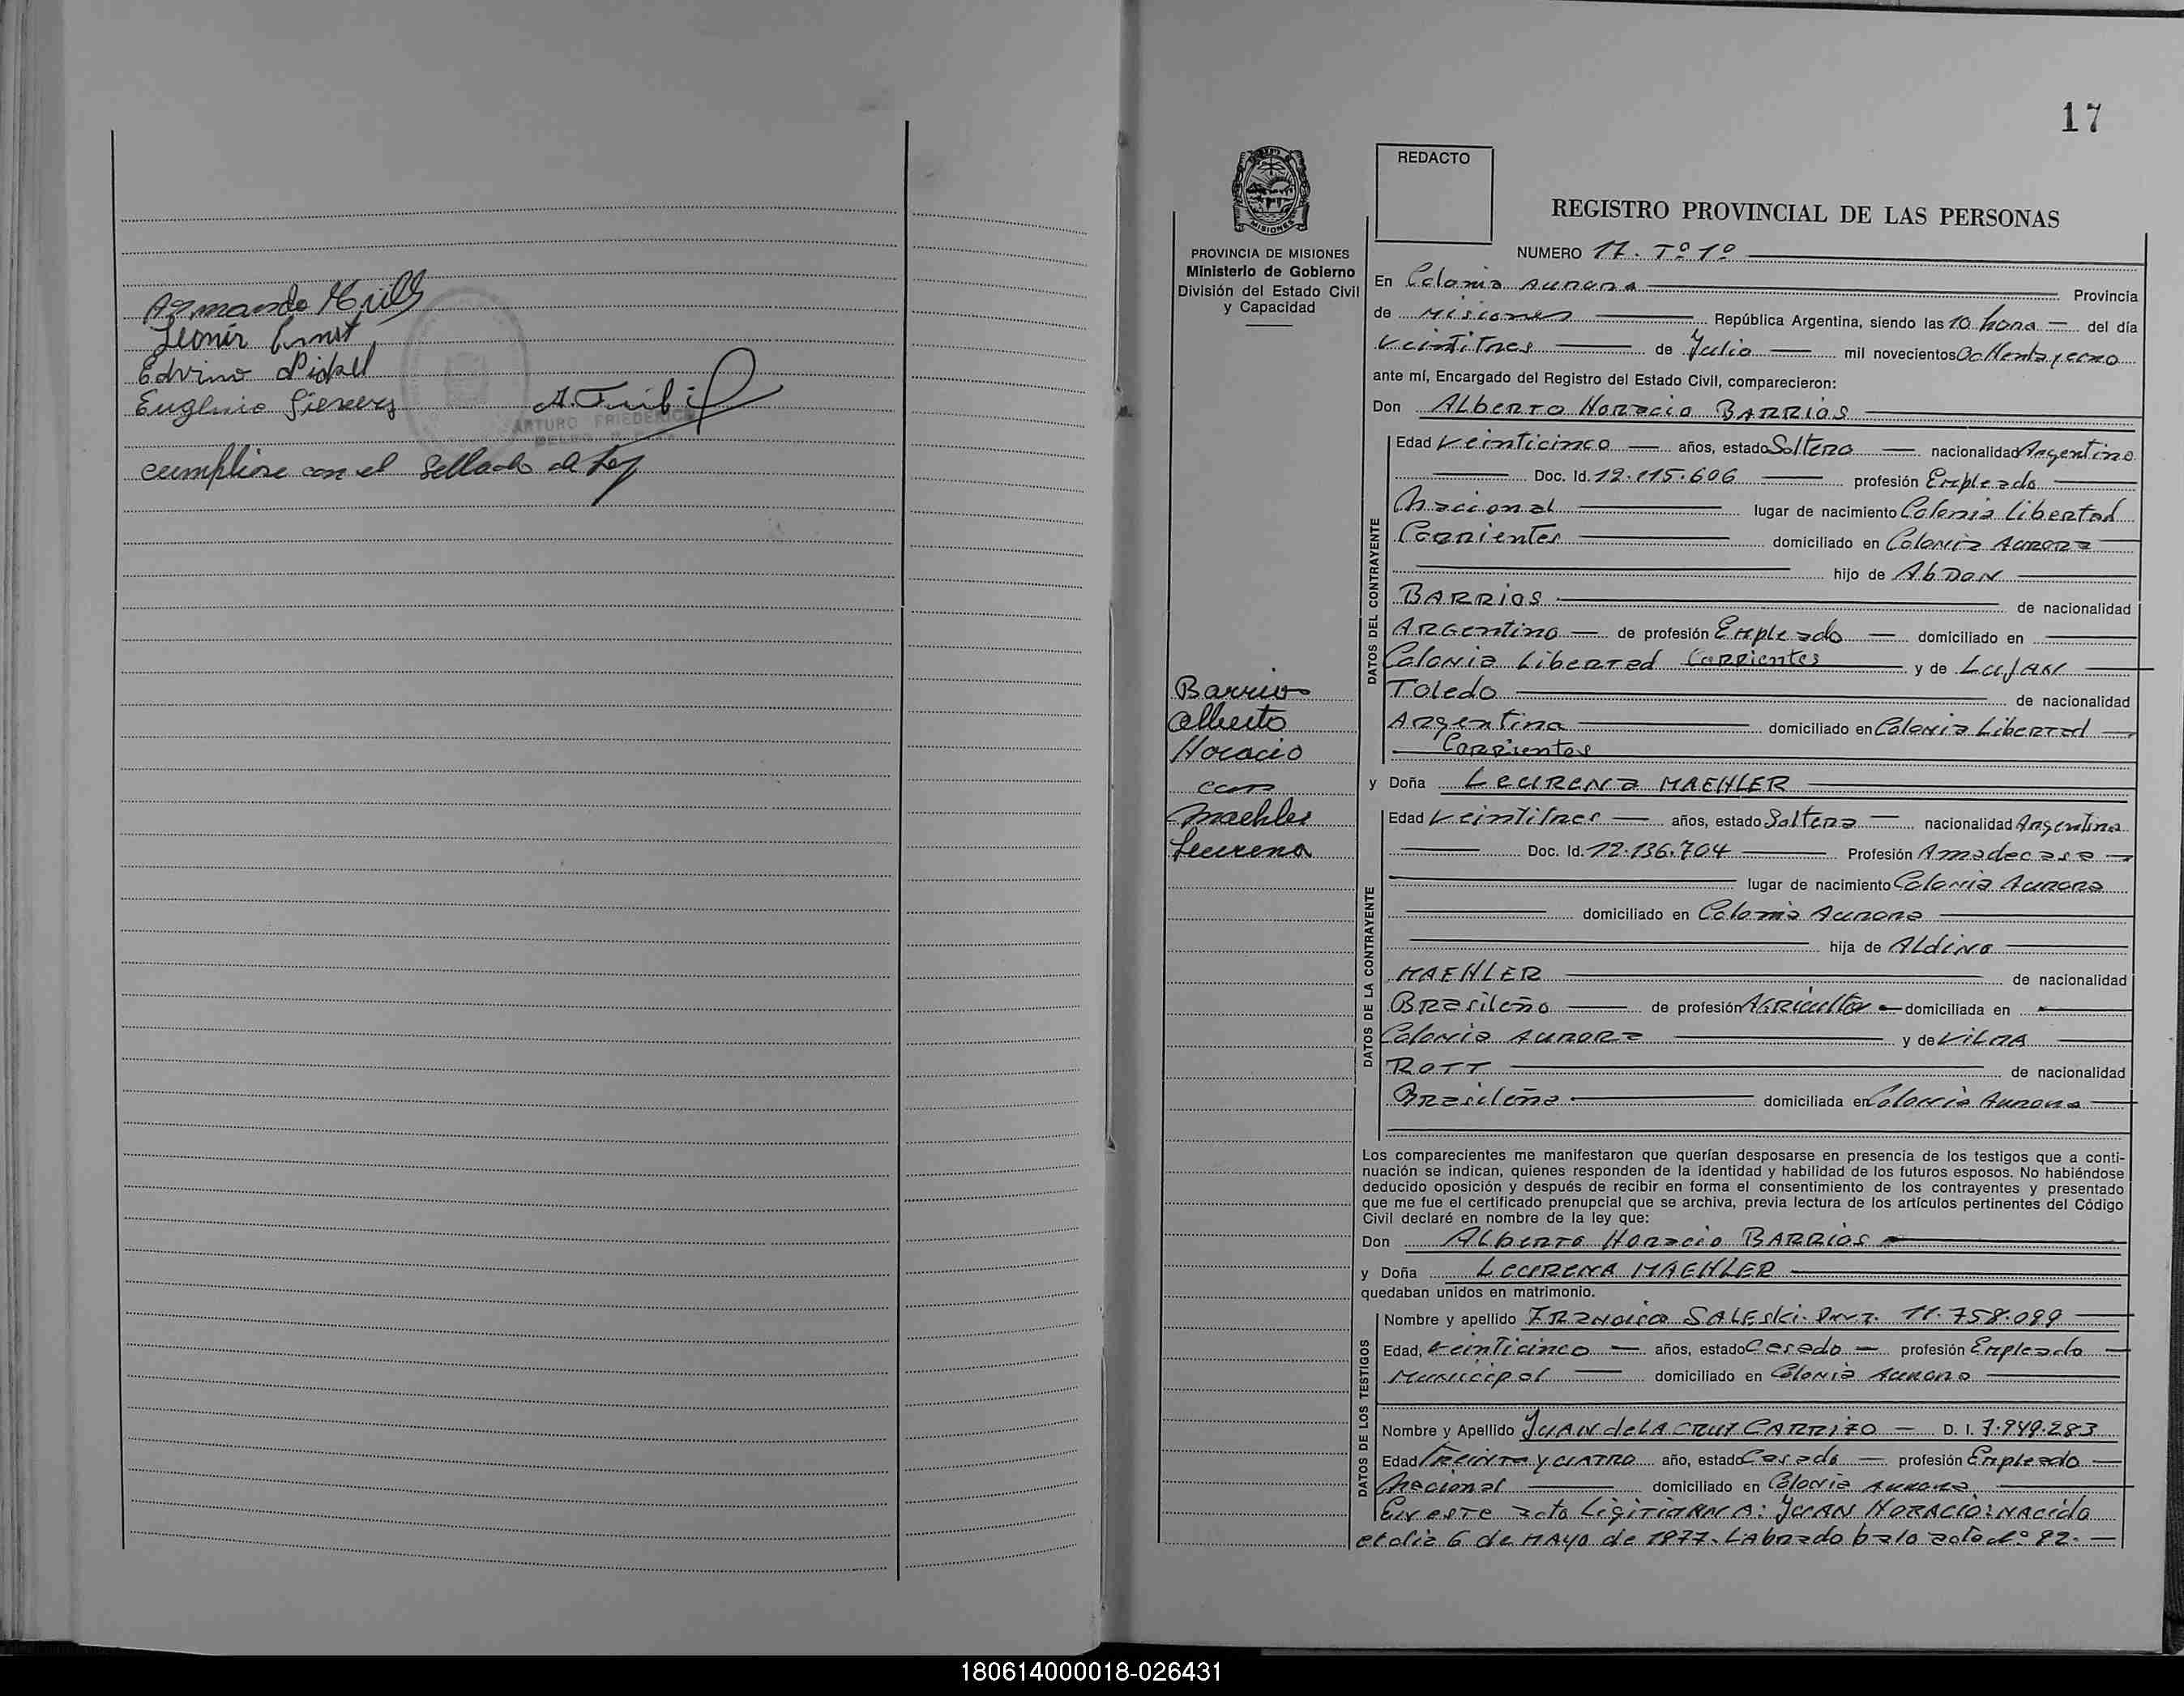 Armando
Leonir Ernst
Edvino Pickel
Eugenio Sievers
ARTURO FRIEDERICH
cumpliose con el Sellado de Ley
17
REDACTO
MISIONES
REGISTRO PROVINCIAL DE LAS PERSONAS
PROVINCIA DE MISIONES
Ministerio de Gobierno
División del Estado Civil
y Capacidad
NUMERO 17. Tº 1º
En Colonia Aurora Provincia
de Misiones República Argentina, siendo las 10 hora del día
Veintitres de Julio mil novecientos Ochenta y uno
ante mí, Encargado del Registro del Estado Civil, comparecieron:
Don ALberto Horacio BARRIOS
DATOS DEL CONTRAYENTE
Edad Veinticinco años, estado Soltero nacionalidad Argentino
Doc. Id. 12.115.606 profesión Empleado
Nacional lugar de nacimiento Colonia Libertad
Corrientes domiciliado en Colonia Aurora
hijo de AbDON
BARRIOS de nacionalidad
ARGentino de profesión Empleado domiciliado en
Colonia Libertad Corrientes y de LUJAN
Toledo de nacionalidad
Argentina domiciliado en Colonia Libertad
Corrientes
Barrios
Alberto
Horacio
con
Maehler
Leurena
y Doña LEURENA MAEHLER
DATOS DE LA CONTRAYENTE
Edad Veintitres años, estado Soltera nacionalidad Argentina
Doc. Id. 12.136.704 Profesión Amadecasa
lugar de nacimiento Colonia Aurora
domiciliado en Colonia Aurora
hija de ALdiNo
MAEHLER de nacionalidad
Brasileño de profesión AGRicultor domiciliada en
Colonia Aurora y de ViLMA
ROTT de nacionalidad
Brasileña domiciliada en Colonia Aurora
Los comparecientes me manifestaron que querían desposarse en presencia de los testigos que a conti-
nuación se indican, quienes responden de la identidad y habilidad de los futuros esposos. No habiéndose
deducido oposición y después de recibir en forma el consentimiento de los contrayentes y presentado
que me fue el certificado prenupcial que se archiva, previa lectura de los artículos pertinentes del Código
Civil declaré en nombre de la ley que:
Don ALberto Horacio BARRiOS
y Doña LEURENA MAEHLER
quedaban unidos en matrimonio.
DATOS DE LOS TESTIGOS
Nombre y apellido FRANcisco SALEski. 11.758.099
Edad, Veinticinco años, estado Casado profesión Empleado
Municipal domiciliado en Colonia Aurora
Nombre y Apellido JUAN de LA CRUZ CARRIZO D. I. 7.849.283
Edad Treinta y cuatro año, estado Casado profesión Empleado
Nacional domiciliado en Colonia Aurora
En este acto LigitimAN A: JUAN HORACIO: NAcido
el dia 6 de MAYO de 1977. LAbrado bajo acta Nº 82.
180614000018-026431